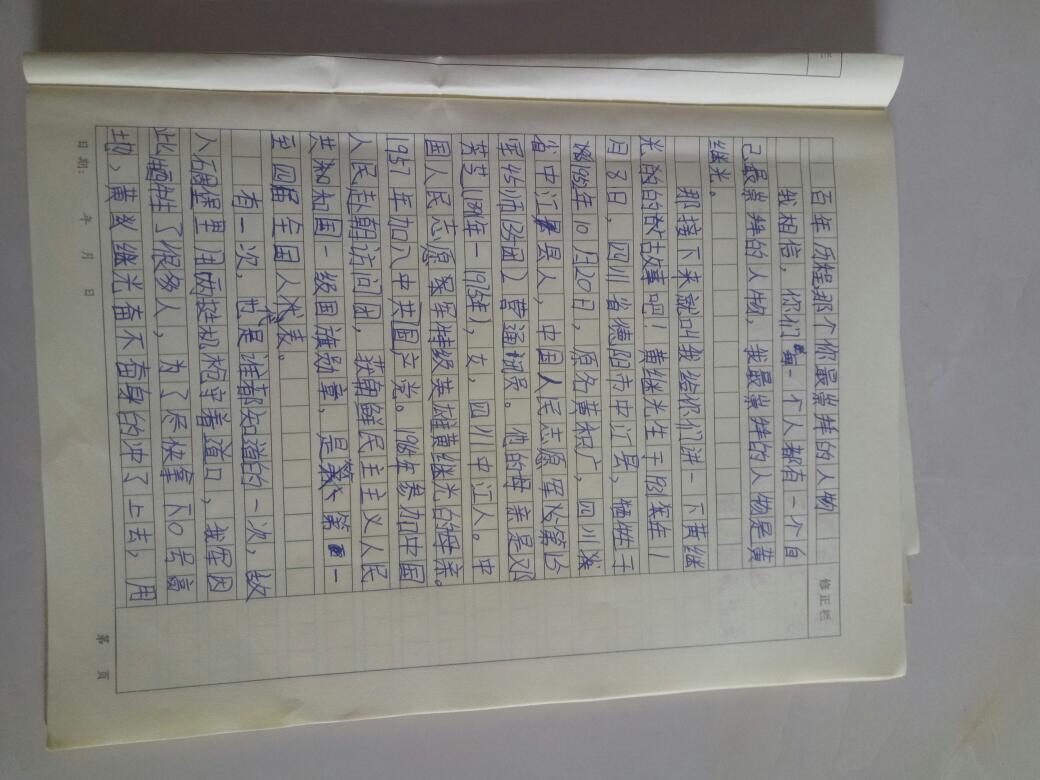 百年历程,那个你最崇拜的人物
我相信,你们每一个人都有一个自
己最崇拜的人物,我最崇拜的人物是黄
继光。
那接下来就叫我给你们讲一下黄继
光的的故事吧!黄继光生于1931年1
月8日,四川省德阳市中江县,牺牲于
1952年10月20日,原名黄积广,四川
省中江县人,中国人民志愿军第15
军45师135团2营通讯员。他的母亲是邓
芳芝(年一年),女,四川中江人。中
国人民志愿军特级英雄黄继光的母亲。
1957年加入中共国产党。年参加中国
人民赴朝访问团,获朝鲜民主主义人民
共和和国一级国旗勋章,是第一
至四届全国人代表。
有一次,也是谁都知道的一次,敌
人石碉堡里用两挺机枪守着道口,我军因
此牺牲了很多人,为了尽快拿下0号高
地,黄继光奋不奋身的冲了上去,用
修正栏
日期: 年 月 日
第 页